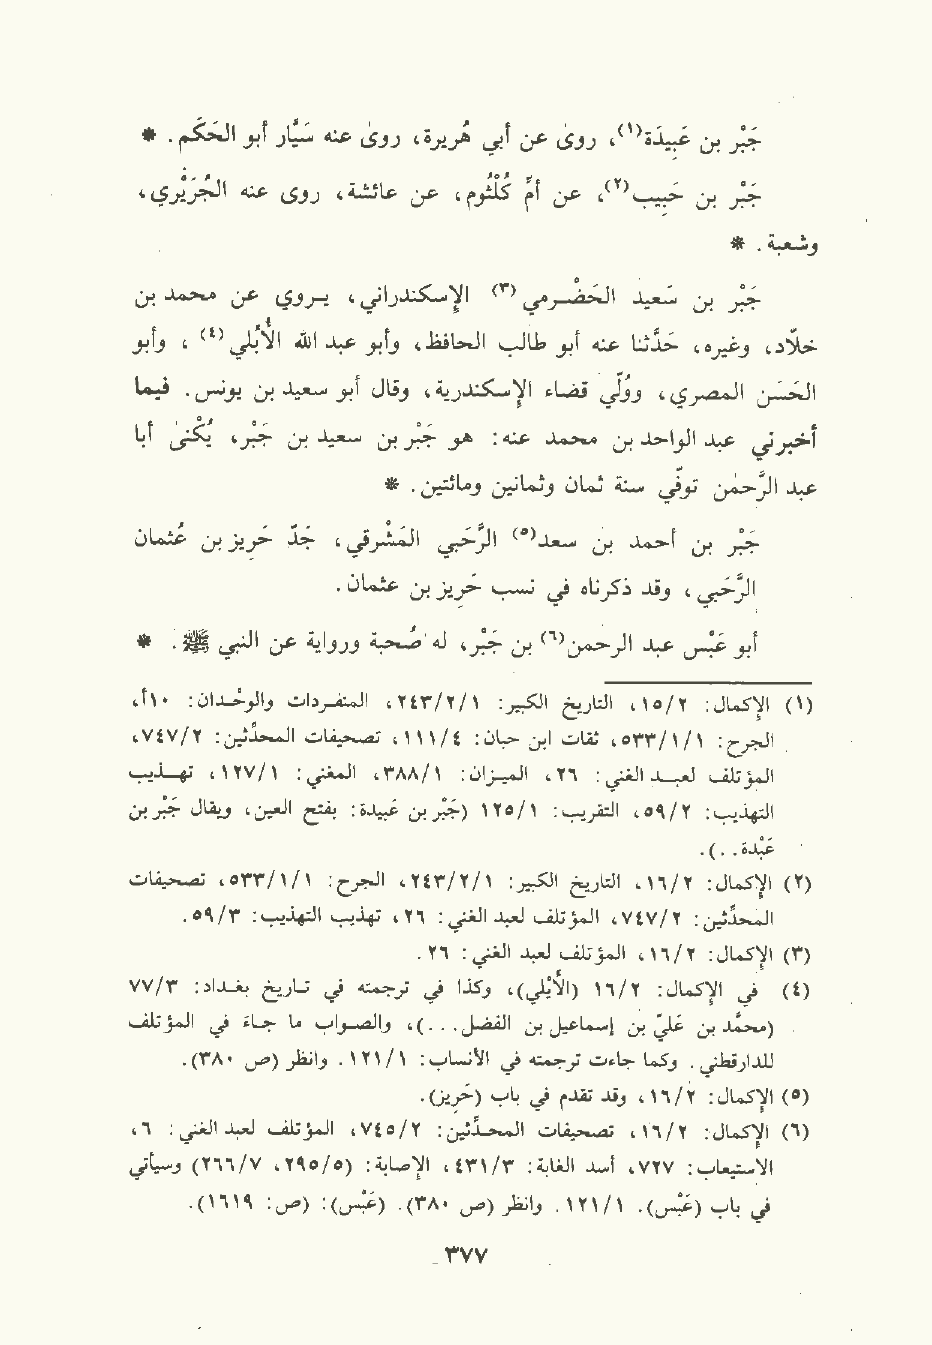 جَبْر بن عَبِيدَة(١)، روىٰ عن أبي هُريرة، روىٰ عنه سَيَّار أبو الحَكَم. *
جَبْر بن حَبِيب(٢)، عن أمّ كُلْثُوم، عن عائشة، روى عنه الجُرَيْري،
وشعبة. *
جَبْر بن سَعيد الحَضْـرمي(٣) الإسكندراني، يـروي عن محمد بن
خلاَّد، وغيره، حَدَّثنا عنه أبو طالب الحافظ، وأبو عبد الله الأُبلي(٤)، وأبو
الحَسَن المصري، وُلِّي قضاء الإسكندرية، وقال أبو سعيد بن يونس. فيما
أخبرني عبد الواحد بن محمد عنه: هو جَبْر بن سعيد بن جَبْر، يُكنىٰ أبا
عبد الرَّحمٰن توفّي سنة ثمان وثمانين ومائتين. *
جَبْر بن أحمد بن سعد(٥) الرَّحَبي المَشْرقي، جَدّ حَرِيز بن عُثمان
الرَّحَبي، وقد ذكرناه في نسب حَرِيز بن عثمان.
أبو عَبْس عبد الرحمن(٦) بن جَبْر، له صُحبة ورواية عن النبي ﷺ. *
(١) الإكمال: ١٥/٢، التاريخ الكبير: ٢٤٣/٢/١، المنفـردات والوحْـدان: ١٠أ،
الجرح: ٥٣٣/١/١، ثقات ابن حبان: ١١١/٤، تصحيفات المحدّثين: ٧٤٧/٢،
المؤتلف لعبـد الغني: ٢٦، الميـزان: ٣٨٨/١، المغني: ١٢٧/١، تهـذيب
التهذيب: ٥٩/٢، التقريب: ١٢٥/١ (جَبْر بن عَبيدة: بفتح العين، ويقال جَبْر بن
عَبْدة..).
(٢) الإكمال: ١٦/٢، التاريخ الكبير: ٢٤٣/٢/١، الجرح: ٥٣٣/١/١، تصحيفات
المحدّثين: ٧٤٧/٢، المؤتلف لعبد الغني: ٢٦، تهذيب التهذيب: ٥٩/٣.
(٣) الإكمال: ١٦/٢، المؤتلف لعبد الغني: ٢٦.
(٤) في الإكمال: ١٦/٢ (الأَيْلي)، وكذا في ترجمته في تـاريخ بغـداد: ٧٧/٣
(محمَّد بن عليّ بن إسماعيل بن الفضل...)، والصـواب ما جـاء في المؤتلف
للدارقطني. وكما جاءت ترجمته في الأنساب: ١٢١/١. وانظر (ص ٣٨٠).
(٥) الإكمال: ١٦/٢، وقد تقدم في باب (حَرِيز).
(٦) الإكمال: ١٦/٢، تصحيفات المحـدّثين: ٧٤٥/٢، المؤتلف لعبد الغني: ٦،
الاستيعاب: ٧٢٧، أسد الغابة: ٤٣١/٣، الإصابة: (٢٩٥/٥، ٢٦٦/٧) وسيأتي
في باب (عَبْس). ١٢١/١. وانظر (ص ٣٨٠). (عَبْس): (ص: ١٦١٩).
٣٧٧